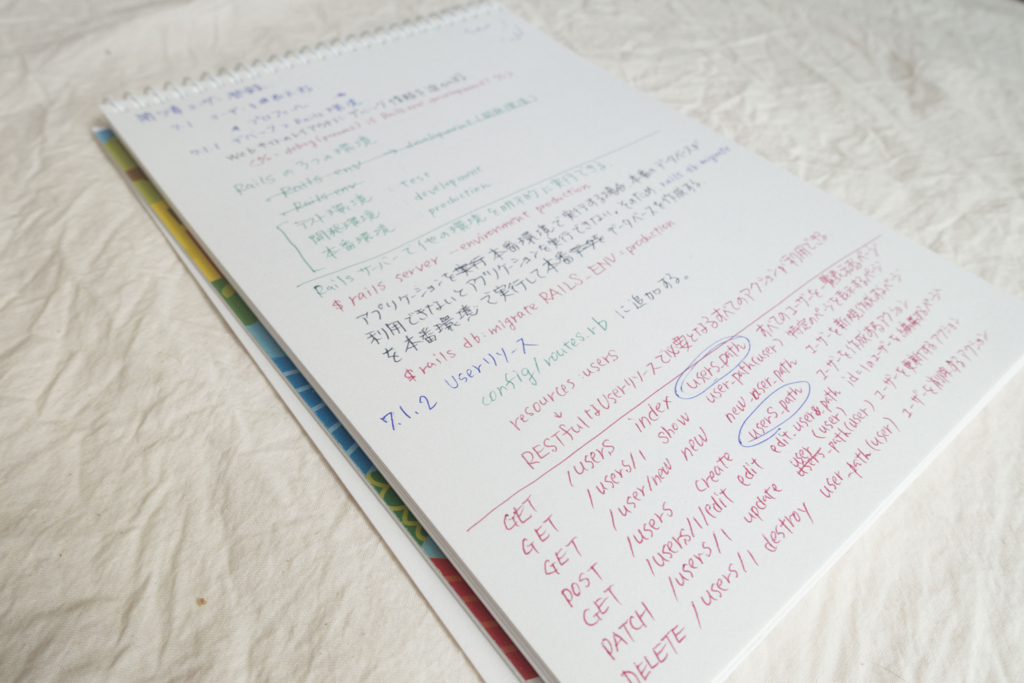 7.1
7.1.1
Railsの3つの環境
テスト環境 : test
開発環境 : development
本番環境 : production
Railsサーバーで他の環境を明示的に実行できる
$ rails server --environment production
アプリケーションを本番環境で実行する場合 本番のデータベースが
利用できないとアプリケーションを実行できない。そのため rails db:migrate
を本番環境で実行して本番データベースを作成する。
$ rails db:migrate RAILS_ENV=production
7.1.2 Userリソース
config/routes.rb に追加する。
resources :users
↓
RESTfulなUserリソースで必要となるすべてのアクションが利用できる
GET /users index users_path すべてのユーザーを一覧するページ
GET /users/1 show user_path(user) 特定のユーザーを表示するページ
GET /user/new new new_user_path ユーザーを新規作成するページ
POST /users create users_path ユーザーを作成するアクション
GET /users/1/edit edit edit_user_path (user) id=1のユーザーを編集するページ
PATCH /users/1 update user_path(user) ユーザーを更新するアクション
DELETE /users/1 destroy user_path(user) ユーザーを削除するアクション